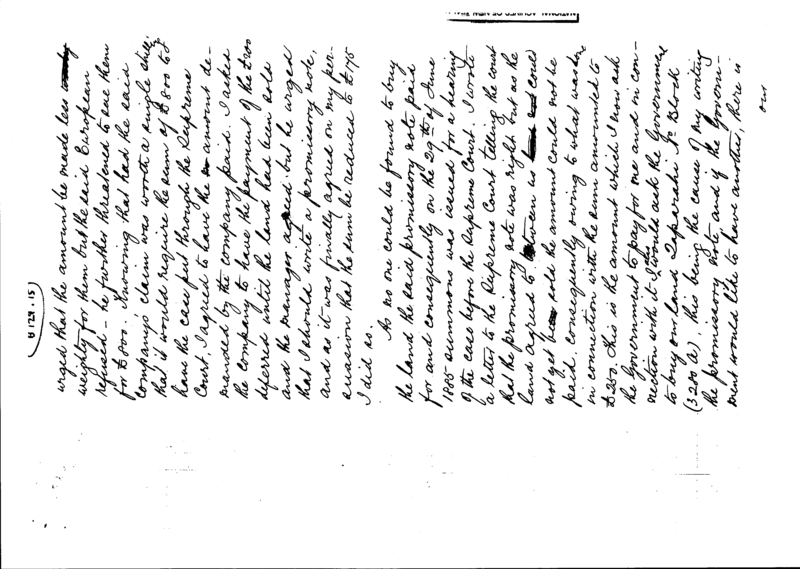 urged that the amount be made less
weighty for them but the said European
refused - he further threatened to sue them
for £800. Knowing that had the said
company's claim was worth a single shilling
that it would require the sum of £800 to
have the case put through the Supreme
Court, I agreed to have the amount de-
manded by the company paid. I asked
the company to have the payment of the £200
deferred until the land had been sold
and the manager agreed, but he urged
that I should write a promissory note,
and as it was finally agreed on my per-
suasion that the sum be reduced to £175
I did so.
As no one could be found to buy
the land the said promissory note paid
for and consequently on the 29th of June
1885 summons was issued for a hearing
of the case before the Supreme Court. I wrote
a letter to the Supreme Court telling the court
that the promissory note was right but as the
land agreed to between us could
not get sold the amount could not be
paid, consequently owing to what was done
in connection with the sum amounted to
£250. This is the amount which I now ask
the Government to pay for me and in con-
nection with it I would ask the Government
to buy our land Taparahi No Block
(3200 a), this being the cause of my writing
the promissory note and if the Govern-
ment would like to have another, there is
our